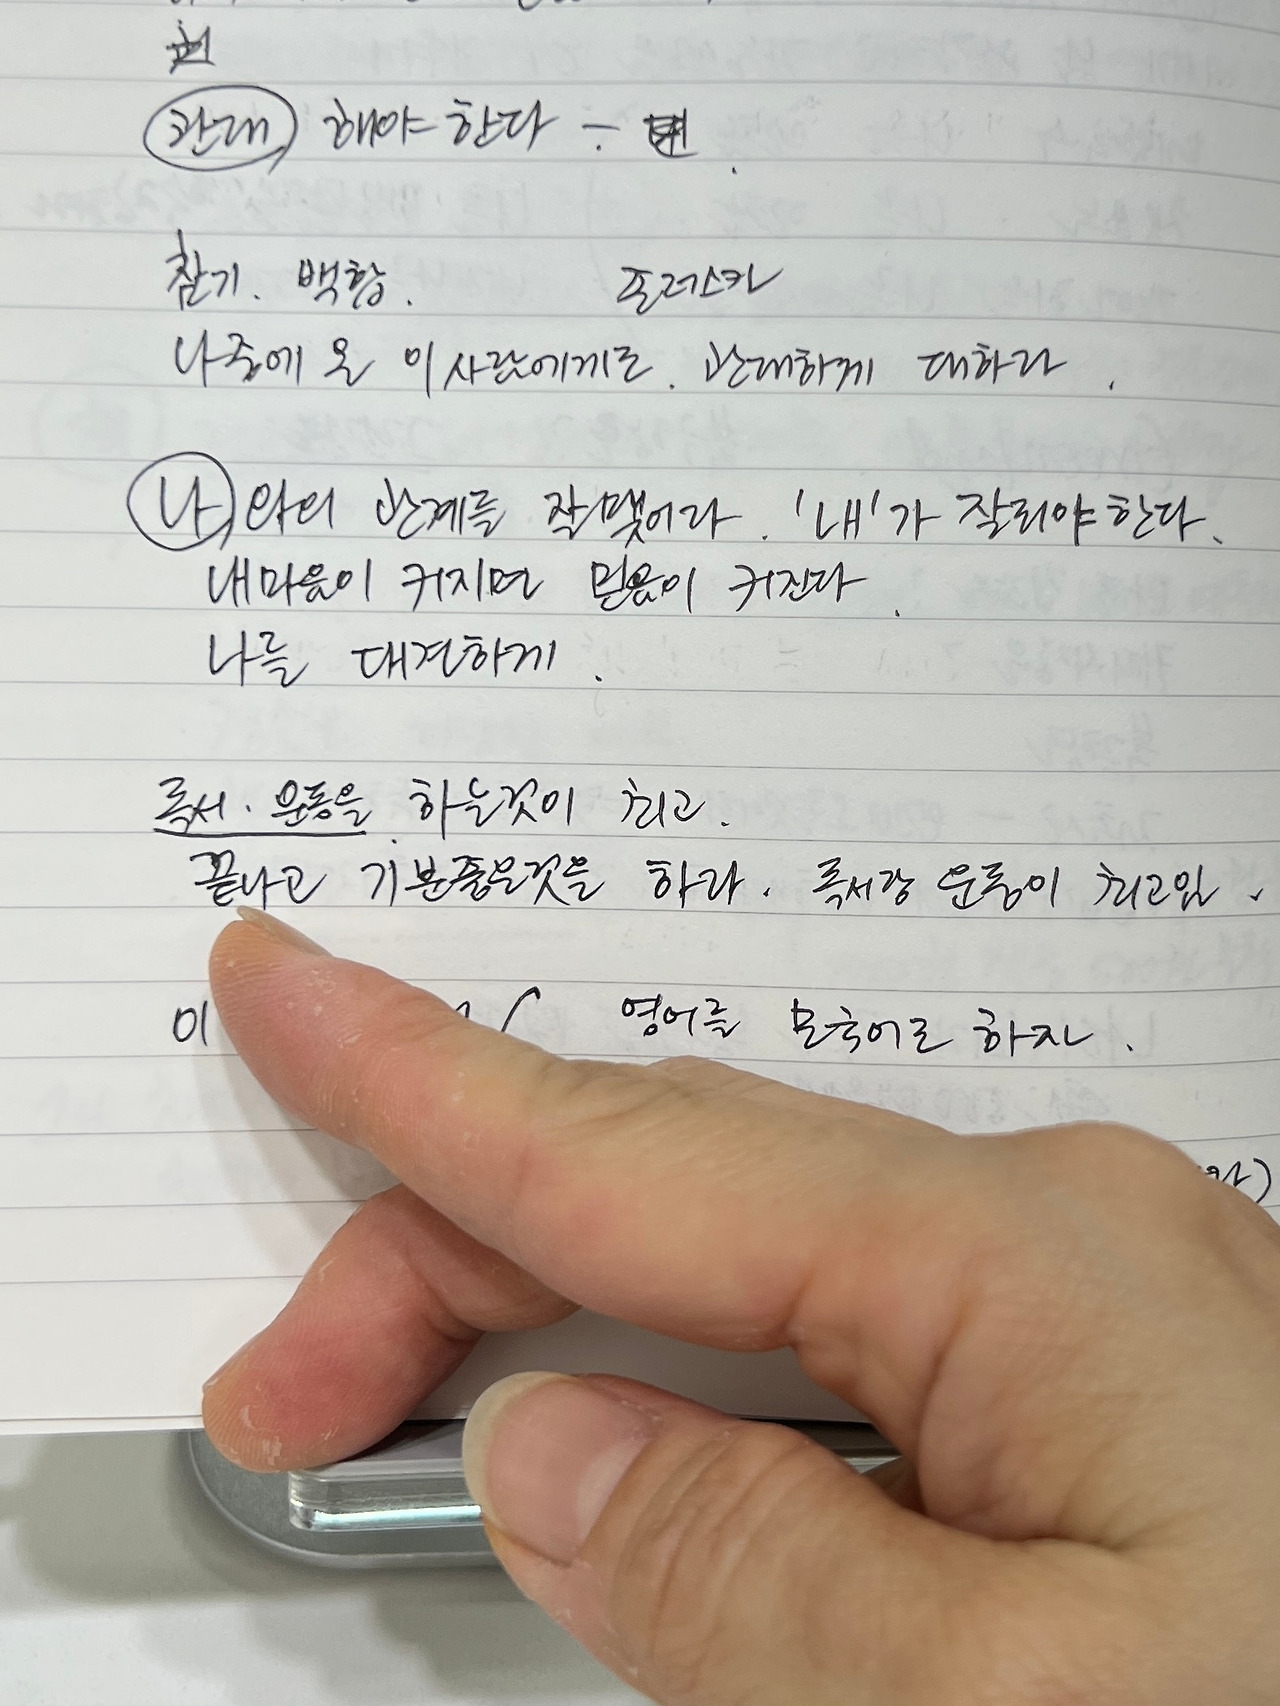 관대 해야 한다 -
참기. 백합. 프레스카
나중에 온 이 사람에게도. 관대하게 대하라.
나 와의 관계를 잘 맺어라. '내'가 잘돼야 한다.
내마음이 커지면 믿음이 커진다.
나를 대견하게.
독서. 운동을 하는것이 최고.
끝나고 기분좋은것을 하라. 독서랑 운동이 최고임.
이 영어를 모국어로 하자.